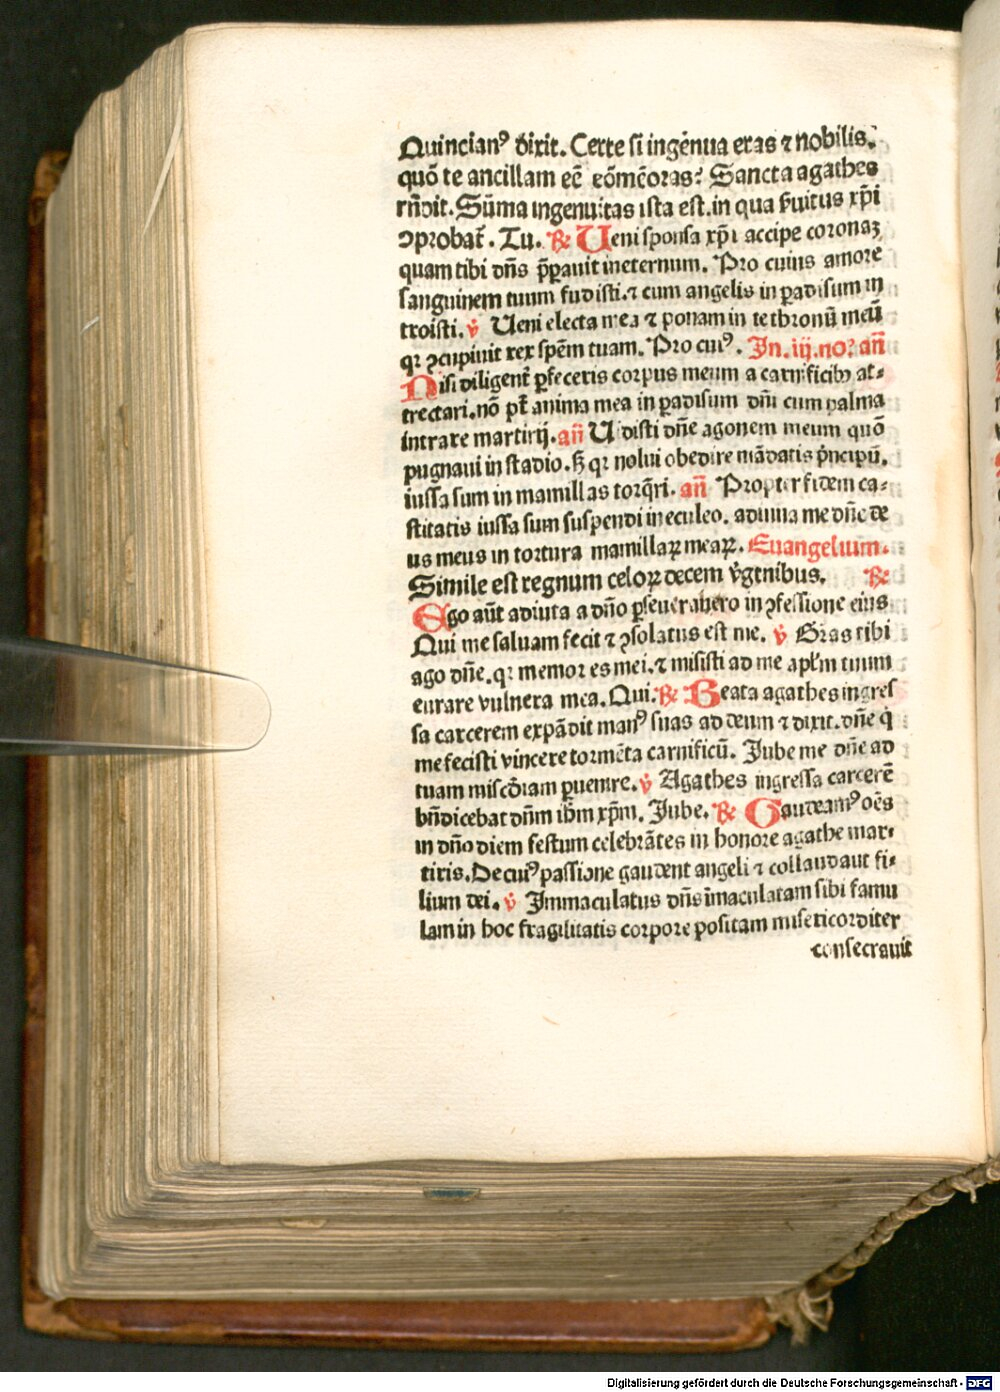 Quincianꝰ dixit. Certe si ingēnua eras ⁊ nobilis.
quō te ancillam eē cōmēoras? Sancta agathes
rñdit. Sūma ingenuitas ista est. in qua ẜuitus xp̄i
ↄprobat̄. Tu. ℟ Ueni sponsa xp̄i accipe coronaʒ
quam tibi dn̄s p̄parauit in eternum. Pro cuius amore
sanguinem tuum fudisti. ⁊ cum angelis in ꝑadisum in
troisti. ℣ Ueni electa mea ⁊ ponam in te thronū meū
qꝛ ↄcupiuit rex spēm tuam. Pro cuiꝰ. In. iij. no. an̄
Nisi diligent̄ ꝑfeceris corpus meum a carnificibꝰ at⸗
trectari. nō pt̄ anima mea in ꝑadisum dn̄i cum palma
intrare martirij. an̄ Uidisti dn̄e agonem meum quō
pugnaui in stadio. sꝫ qꝛ nolui obedire mādatis pͥncipū.
iussa sum in mamillas torq̄ri. an̄ Propter fidem ca⸗
stitatis iussa sum suspendi in eculeo. adiuua me dn̄e de
us meus in tortura mamillaꝝ meaꝝ. Euangelium.
Simile est regnum celoꝝ decem v̄ginibus. ℟
Ego aūt adiuta a dn̄o ꝑseuerabero in ↄfessione eius
Qui me saluam fecit ⁊ ↄsolatus est me. ℣ Gras tibi
ago dn̄e. qꝛ memor es mei. ⁊ misisti ad me apl̄m tuum
curare vulnera mea. Qui. ℟ Beata agathes ingres
sa carcerem expādit manꝰ suas ad deum ⁊ dixit. dn̄e q̇
me fecisti vincere tormēta carnificū. Jube me dn̄e ad
tuam misc̄diam ꝑuenire. ℣ Agathes ingressa carcerē
bn̄dicebat dn̄m ihm̄ xp̄m. Jube. ℟ Gaudeamꝰ oēs
in dn̄o diem festum celebrātes in honore agathe mar⸗
tiris. De cuiꝰ passione gaudent angeli ⁊ collaudant fi⸗
lium dei. ℣ Immaculatus dn̄s īmaculatam sibi famu
lam in hoc fragilitatis corpore positam misericorditer
consecrauit
Digitalisierung gefördert durch die Deutsche Forschungsgemeinschaft - DFG